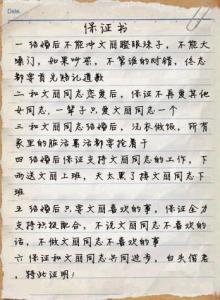 Date
保证书
一 结婚后不能冲文丽瞪眼珠子，不能大
嗓门，如果吵架，不管谁的对错，佟志
都要首先赔礼道歉
二 和文丽同志恋爱后，保证不再爱其他
女同志，一辈子只爱文丽同志一个
三 和文丽同志结婚后，洗衣做饭，所有
家里的脏活累活都要抢着干
四 结婚后保证支持文丽同志的工作，下
雨送文丽上班，天太黑了接文丽同志下
班
五 结婚后只要文丽喜欢的事，保证全力
支持认投配合，不说文丽同志不喜欢的
话，不做文丽同志不喜欢的事
六 保证和文丽同志共同进步，白头偕老
，特此证明！